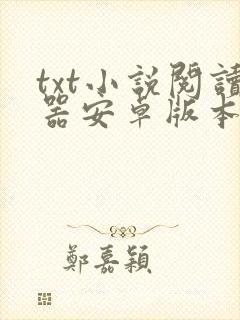 txt小說閱讀
器安卓版本
鄭嘉穎